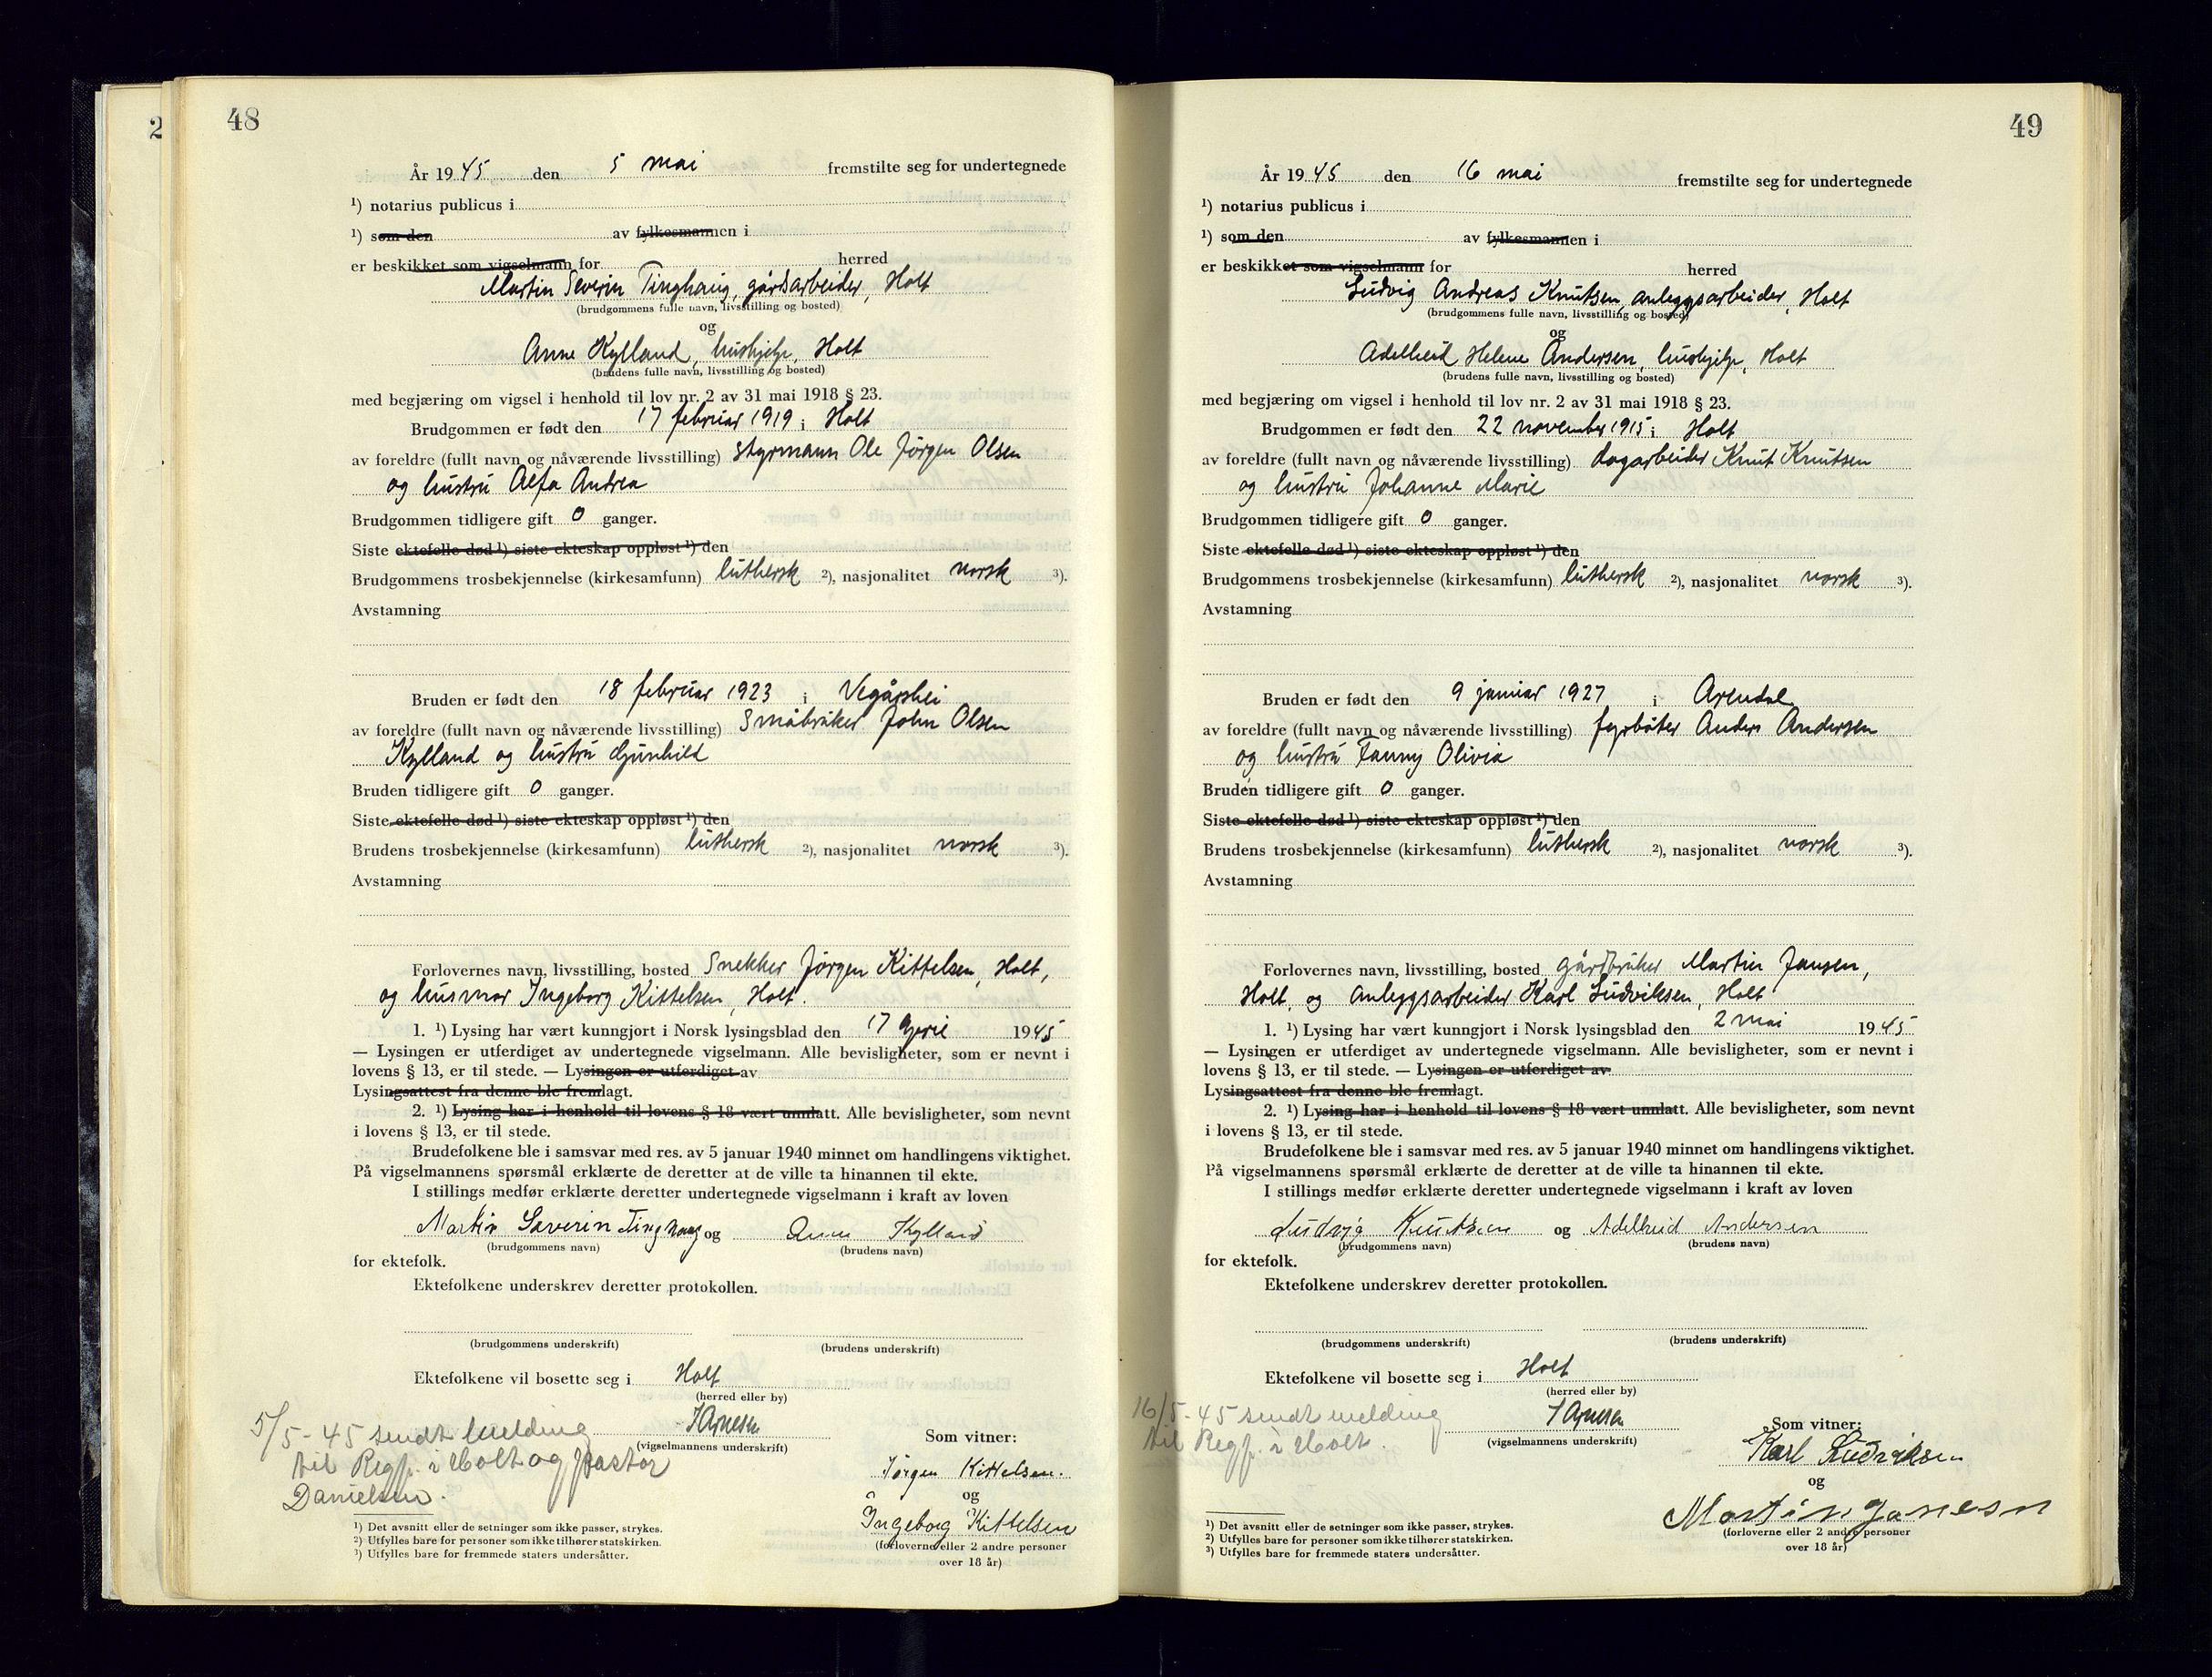 2
48
År 1945 den 5 mai fremstilte seg for undertegnede
¹) notarius publicus i
¹) som den av fylkesmannen i
er beskikket som vigselmann for herred
Martin Severin Tinghaug, gårdsarbeider, Holt
(brudgommens fulle navn, livsstilling og bosted)
og
Anne Kylland, hushjelp, Holt
(brudens fulle navn, livsstilling og bosted)
med begjæring om vigsel i henhold til lov nr. 2 av 31 mai 1918 § 23.
Brudgommen er født den 17 februar 1919 i Holt
av foreldre (fullt navn og nåværende livsstilling) styrmann Ole Jørgen Olsen
og hustru Alfa Andrea
Brudgommen tidligere gift 0 ganger.
Siste ektefelle død ¹) siste ekteskap oppløst ¹) den
Brudgommens trosbekjennelse (kirkesamfunn) luthersk ²), nasjonalitet norsk ³).
Avstamning
Bruden er født den 18 februar 1923 i Vegårshei
av foreldre (fullt navn og nåværende livsstilling) Småbruker John Olsen
Kylland og hustru Gunhild
Bruden tidligere gift 0 ganger.
Siste ektefelle død ¹) siste ekteskap oppløst ¹) den
Brudens trosbekjennelse (kirkesamfunn) luthersk ²), nasjonalitet norsk ³).
Avstamning
Forlovernes navn, livsstilling, bosted Snekker Jørgen Kittelsen, Holt,
og husmor Ingeborg Kittelsen, Holt.
1. ¹) Lysing har vært kunngjort i Norsk lysingsblad den 17 april 1945
— Lysingen er utferdiget av undertegnede vigselmann. Alle bevisligheter, som er nevnt i
lovens § 13, er til stede. — Lysingen er utferdiget av
Lysingsattest fra denne ble fremlagt.
2. ¹) Lysing har i henhold til lovens § 18 vært unnlatt. Alle bevisligheter, som nevnt
i lovens § 13, er til stede.
Brudefolkene ble i samsvar med res. av 5 januar 1940 minnet om handlingens viktighet.
På vigselmannens spørsmål erklærte de deretter at de ville ta hinannen til ekte.
I stillings medfør erklærte deretter undertegnede vigselmann i kraft av loven
Martin Severin Tinghaug og Anne Kylland
(brudgommens navn) (brudens navn)
for ektefolk.
Ektefolkene underskrev deretter protokollen.
(brudgommens underskrift) (brudens underskrift)
Ektefolkene vil bosette seg i Holt
(herred eller by)
(vigselmannens underskrift)
5/5-45 sendt melding
til Regf. i Holt og pastor
Danielsen.
Som vitner:
Jørgen Kittelsen.
og
Ingeborg Kittelsen
(forloverne eller 2 andre personer
over 18 år)
¹) Det avsnitt eller de setninger som ikke passer, strykes.
²) Utfylles bare for personer som ikke tilhører statskirken.
³) Utfylles bare for fremmede staters undersåtter.
49
År 1945 den 16 mai fremstilte seg for undertegnede
¹) notarius publicus i
¹) som den av fylkesmannen i
er beskikket som vigselmann for herred
Ludvig Andreas Knutsen, anleggsarbeider, Holt
(brudgommens fulle navn, livsstilling og bosted)
og
Adelheid Helene Andersen, hushjelp, Holt
(brudens fulle navn, livsstilling og bosted)
med begjæring om vigsel i henhold til lov nr. 2 av 31 mai 1918 § 23.
Brudgommen er født den 22 november 1915 i Holt
av foreldre (fullt navn og nåværende livsstilling) dagarbeider Knut Knutsen
og hustru Johanne Marie
Brudgommen tidligere gift 0 ganger.
Siste ektefelle død ¹) siste ekteskap oppløst ¹) den
Brudgommens trosbekjennelse (kirkesamfunn) luthersk ²), nasjonalitet norsk ³).
Avstamning
Bruden er født den 9 januar 1927 i Arendal
av foreldre (fullt navn og nåværende livsstilling) fyrbøter Anders Andersen
og hustru Fanny Olivia
Bruden tidligere gift 0 ganger.
Siste ektefelle død ¹) siste ekteskap oppløst ¹) den
Brudens trosbekjennelse (kirkesamfunn) luthersk ²), nasjonalitet norsk ³).
Avstamning
Forlovernes navn, livsstilling, bosted gårdbruker Martin Jansen,
Holt, og Anleggsarbeider Karl Ludviksen, Holt
1. ¹) Lysing har vært kunngjort i Norsk lysingsblad den 2 mai 1945
— Lysingen er utferdiget av undertegnede vigselmann. Alle bevisligheter, som er nevnt i
lovens § 13, er til stede. — Lysingen er utferdiget av
Lysingsattest fra denne ble fremlagt.
2. ¹) Lysing har i henhold til lovens § 18 vært unnlatt. Alle bevisligheter, som nevnt
i lovens § 13, er til stede.
Brudefolkene ble i samsvar med res. av 5 januar 1940 minnet om handlingens viktighet.
På vigselmannens spørsmål erklærte de deretter at de ville ta hinannen til ekte.
I stillings medfør erklærte deretter undertegnede vigselmann i kraft av loven
Ludvig Knutsen og Adelheid Andersen
(brudgommens navn) (brudens navn)
for ektefolk.
Ektefolkene underskrev deretter protokollen.
(brudgommens underskrift) (brudens underskrift)
Ektefolkene vil bosette seg i Holt
(herred eller by)
(vigselmannens underskrift)
16/5-45 sendt melding
til Regf. i Holt.
Som vitner:
Karl Ludviksen
og
Martin Janesn
(forloverne eller 2 andre personer
over 18 år)
¹) Det avsnitt eller de setninger som ikke passer, strykes.
²) Utfylles bare for personer som ikke tilhører statskirken.
³) Utfylles bare for fremmede staters undersåtter.